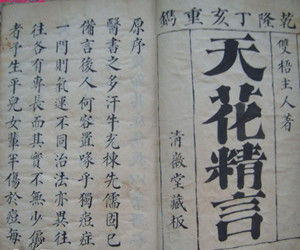 乾隆丁亥重鐫
雙梧主人著
天花精言
清徽堂藏板
原序
醫書之多汗牛充棟先儒固已
備言後人何容置喙乎獨痘症
一門則氣運不同治法亦異往
往各有專長而其實不無少偏
者予生平兒女輩半傷於痘每